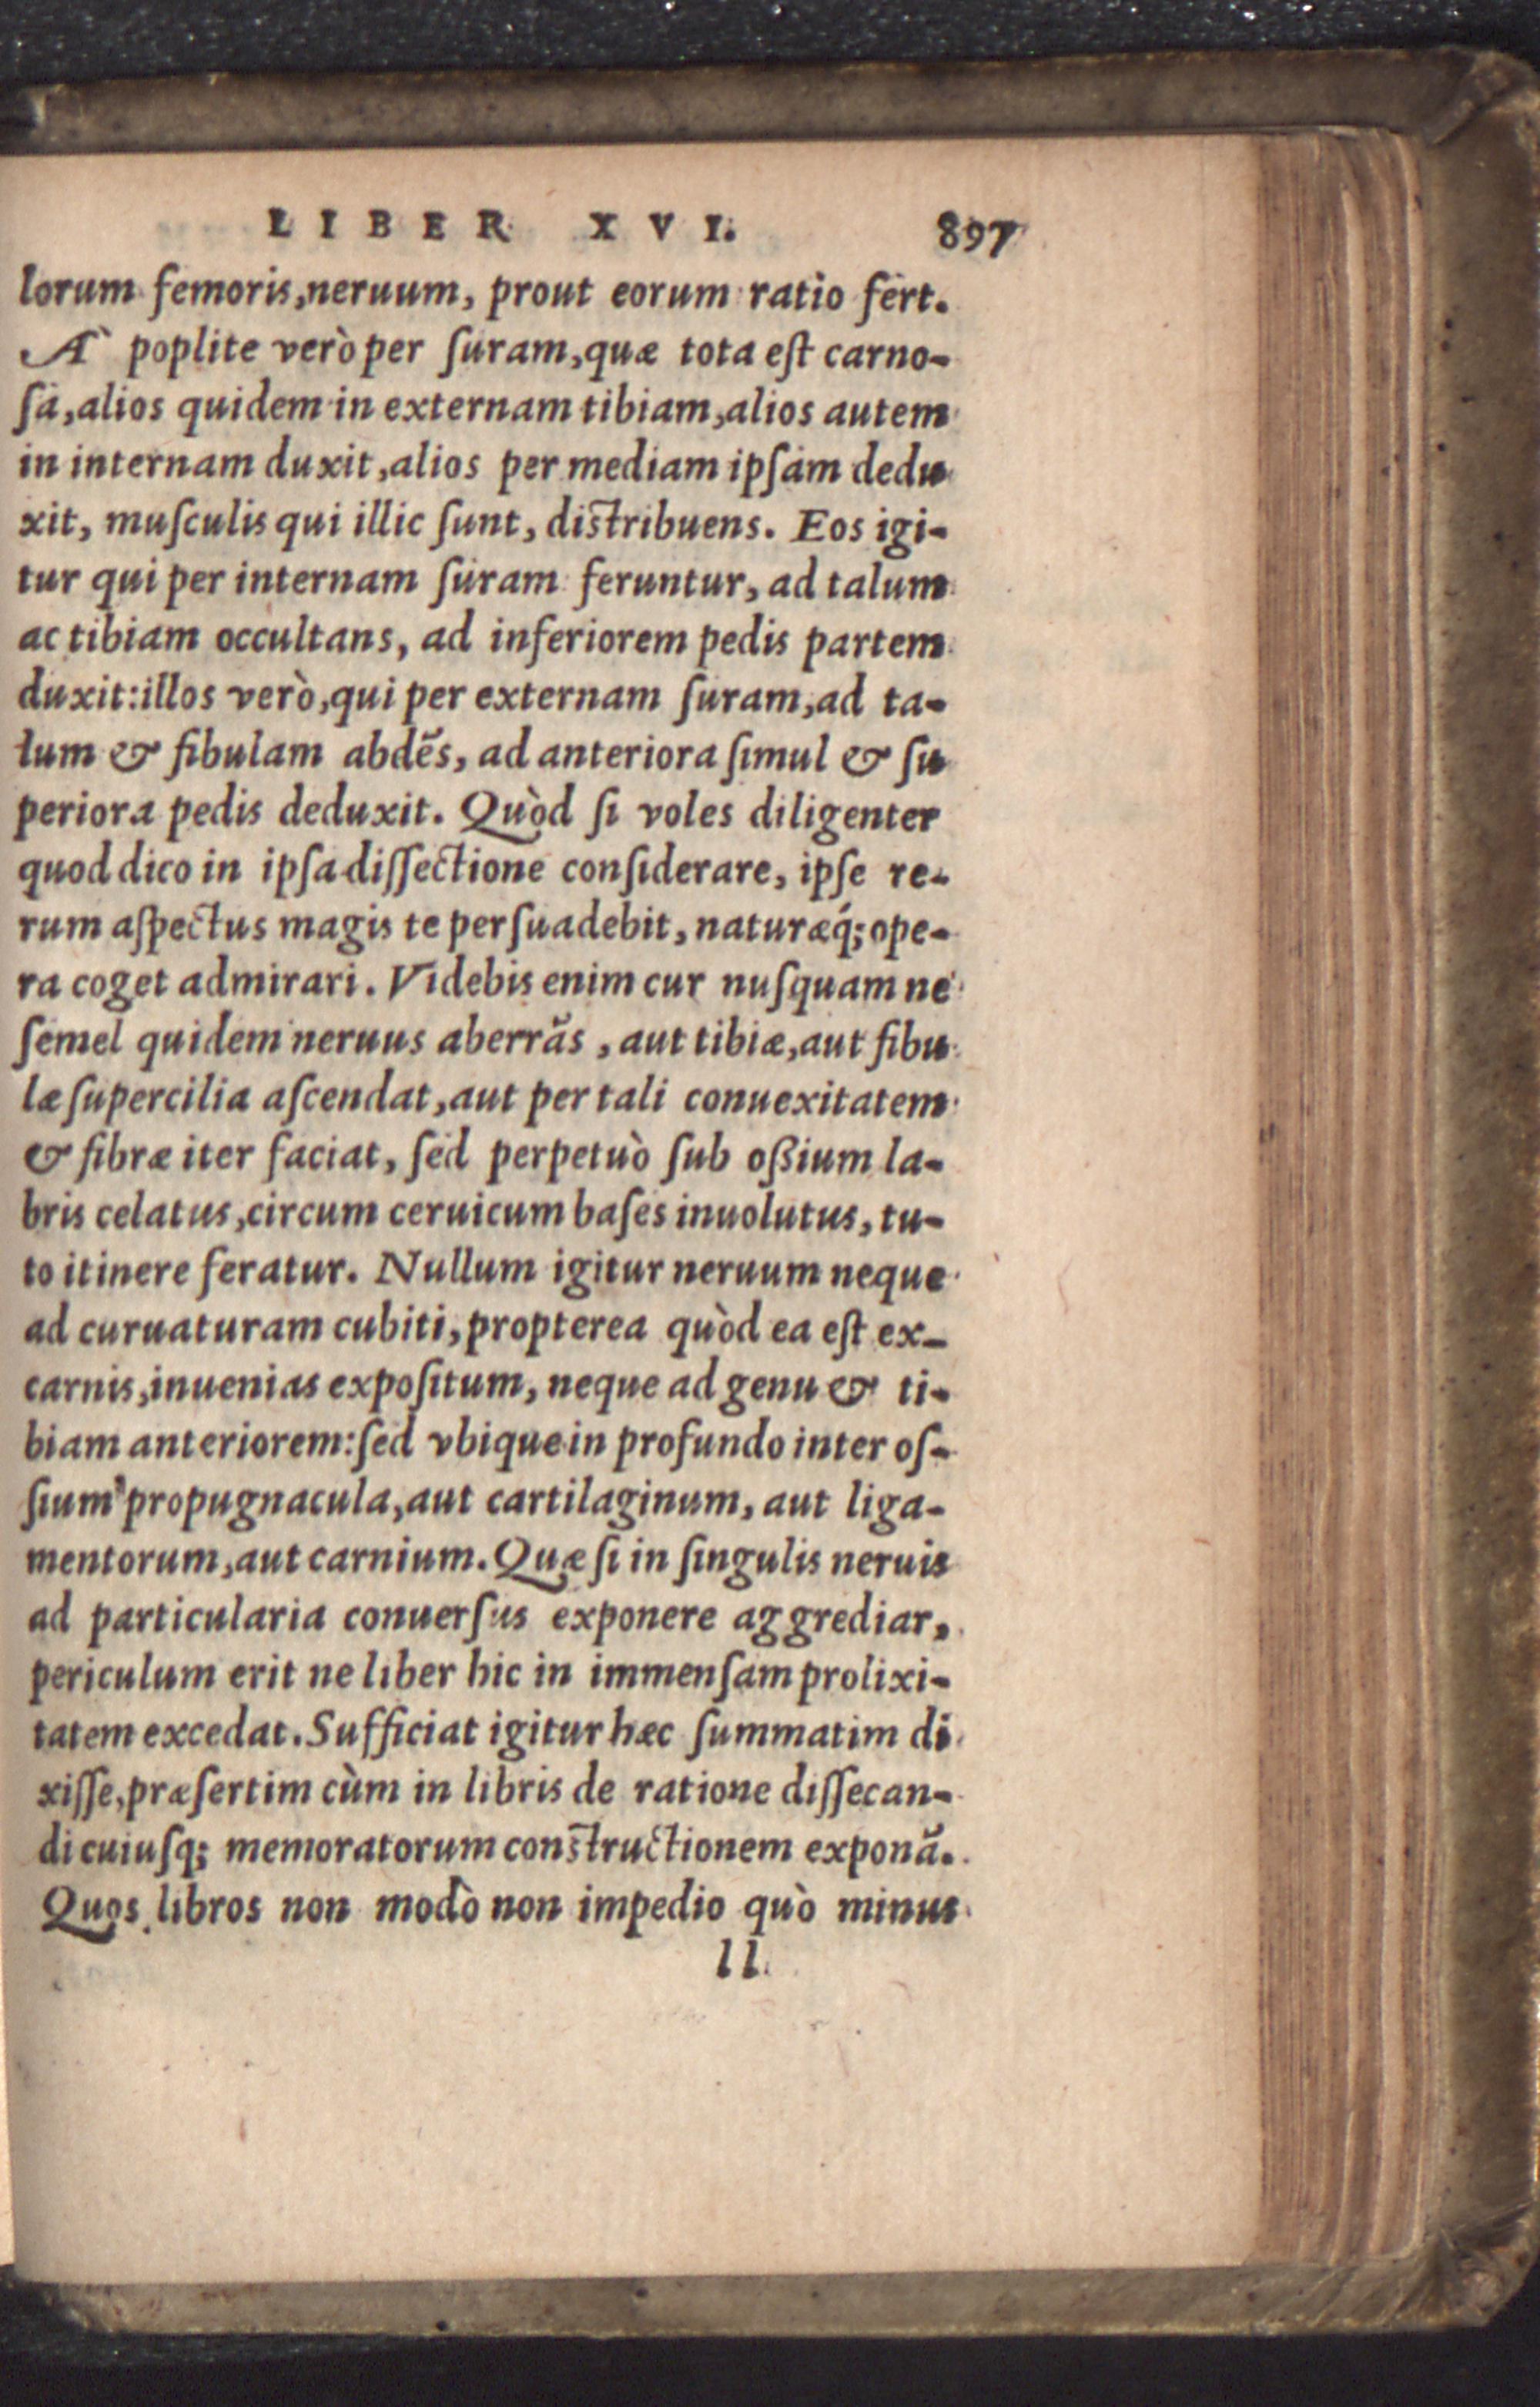 LIBER XVI. 897
lorum femoris,neruum, prout eorum ratio fert.
À poplite verò per ſuram,quæ tota eſt carno-
ſa,alios quidem in externam tibiam,alios autem
in internam duxit,alios per mediam ipſam dedu
xit, muſculis qui illic ſunt, diſtribuens. Eos igi-
tur qui per internam ſuram feruntur, ad talum
ac tibiam occultans, ad inferiorem pedis partem
duxit:illos verò,qui per externam ſuram,ad ta-
lum & fibulam abdẽs, ad anteriora ſimul & ſu
periora pedis deduxit. Quòd ſi voles diligenter
quod dico in ipſa diſſectione conſiderare, ipſe re-
rum aſpectus magis te perſuadebit, naturæq́; ope-
ra coget admirari. Videbis enim cur nuſquam ne
ſemel quidem neruus aberrãs , aut tibiæ,aut fibu
læ ſupercilia aſcendat,aut per tali conuexitatem
& fibræ iter faciat, ſed perpetuò ſub oßium la-
bris celatus,circum ceruicum baſes inuolutus, tu-
to itinere feratur. Nullum igitur neruum neque
ad curuaturam cubiti, propterea quòd ea eſt ex-
carnis,inuenias expoſitum, neque ad genu & ti-
biam anteriorem:ſed vbique in profundo inter oſ-
ſium propugnacula,aut cartilaginum, aut liga-
mentorum,aut carnium. Quæ ſi in ſingulis neruis
ad particularia conuerſus exponere aggrediar,
periculum erit ne liber hic in immenſam prolixi-
tatem excedat. Sufficiat igitur hæc ſummatim di
xiſſe,præſertim cùm in libris de ratione diſſecan-
di cuiuſq; memoratorum conſtructionem exponã.
Quos libros non modò non impedio quò minus
ll